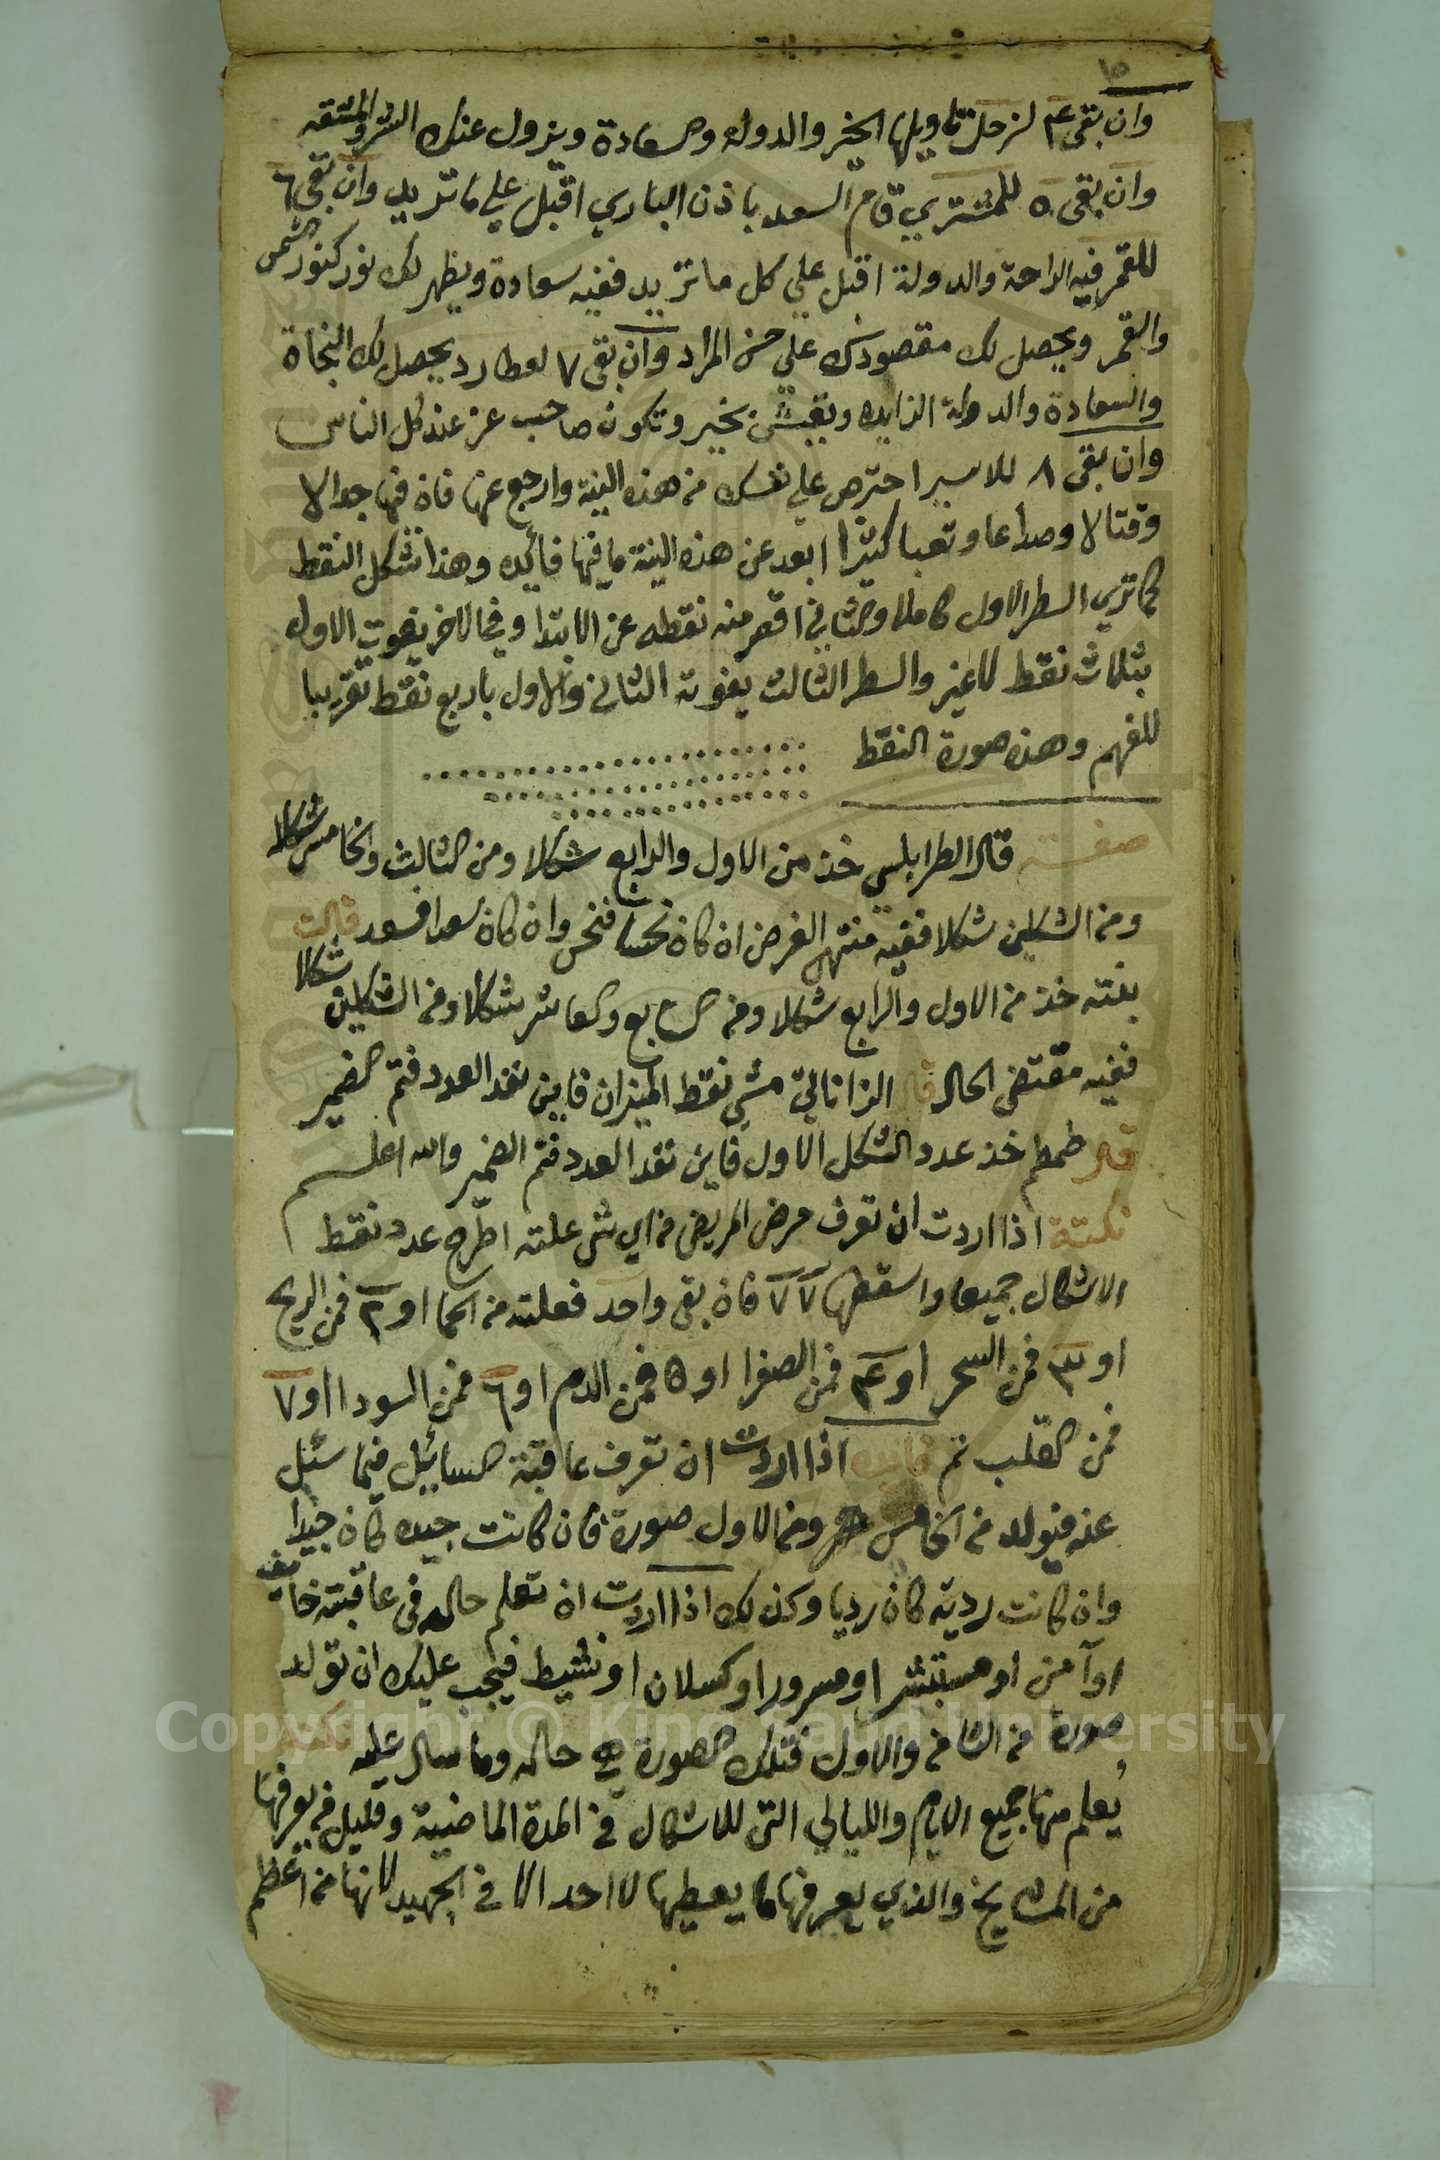 ١٥
وان بقى ٤ لزحل تاويلها الخير والدوله والسعادة ويزول عنك الشر والمشقه
وان بقى ٥ للمشتري قام السعد باذن الباري اقبل علي ما تريد وان بقى ٦
للقمر فيه الراحة والدولة اقبل علي كل ما تريد ففيه سعادة ويظهر لك نور كنور الشمس
والقمر ويحصل لك مقصودك علي حسن المراد وان بقى ٧ لعطارد يحصل لك النجاة
والسعادة والدولة الزايده وتعيش بخير وتكون صاحب عز عند كل الناس
وان بقى ٨ للاسير احترص علي نفسك من هذه النية وارجع عنها فان فيها جدالا
وقتالا وصداعا وتعبا كثيرا ابعد عن هذه النية ما فيها فائده وهذا شكل النقط
كما تري السطر الاول كاملا والثاني اقصر منه نقطه عن الابتدا وفي الاخر يفوت الاول
بثلاث نقط لاغير والسطر الثالث يفوته الثاني والاول باربع نقط تقريبا
للفهم وهذه صورة النقط
صفة قال الطرابلسي خذ من الاول والرابع شكلا ومن الثالث والخامس شكلا
ومن الشكلين شكلا ففيه منتهى الغرض ان كان نحسا فنحس وان كان سعدا فسعد قالت
بنته خذ من الاول والرابع شكلا ومن السابع والعاشر شكلا ومن الشكلين شكلا
ففيه مقتضى الحال قال الزاناتي مشي نقط الميزان فاين نفد العدد فثم الضمير
قال طمطم خذ عدد الشكل الاول فاين نفد العدد فثم الضمير والله اعلم
نكتة اذا اردت ان تعرف مرض المريض من اي شئ علته اطرح عدد نقط
الاشكال جميعا واسقطها ٧ ٧ فان بقى واحد فعلته من الحما او ٢ فمن الريح
او ٣ فمن السحر او ٤ فمن الصفرا او ٥ فمن الدم او ٦ فمن السودا او ٧
فمن القلب تم فايده اذا اردت ان تعرف عاقبة السائيل فيما سئل
عنه فيولد من الخامس ومن الاول صورة فان كانت جيده كان جيدا
وان كانت رديه كان رديا وكذلك اذا اردت ان تعلم حاله في عاقبته خايف
او آمن او مستبشر او مسرور او كسلان او نشيط فيجب عليك ان تولد
صورة من الثامن والاول فتلك الصورة هي حاله وما سال عليه
يُعلم منها جميع الايام والليالي التى للاشكال في المدة الماضية وقليل من يعرفها
من المشايخ والذي يعرفها ما يعطيها لاحد الا في الجهيد لانها من اعظم
Copyright © King Saud University